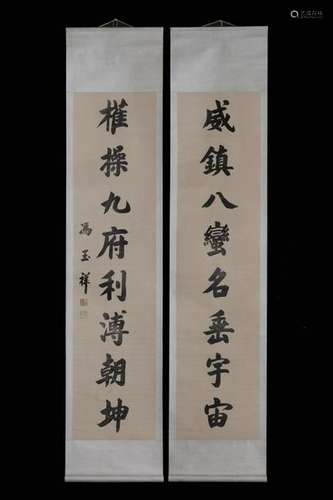 威鎮八蠻名垂宇宙
權操九府利溥朝坤
馮玉祥